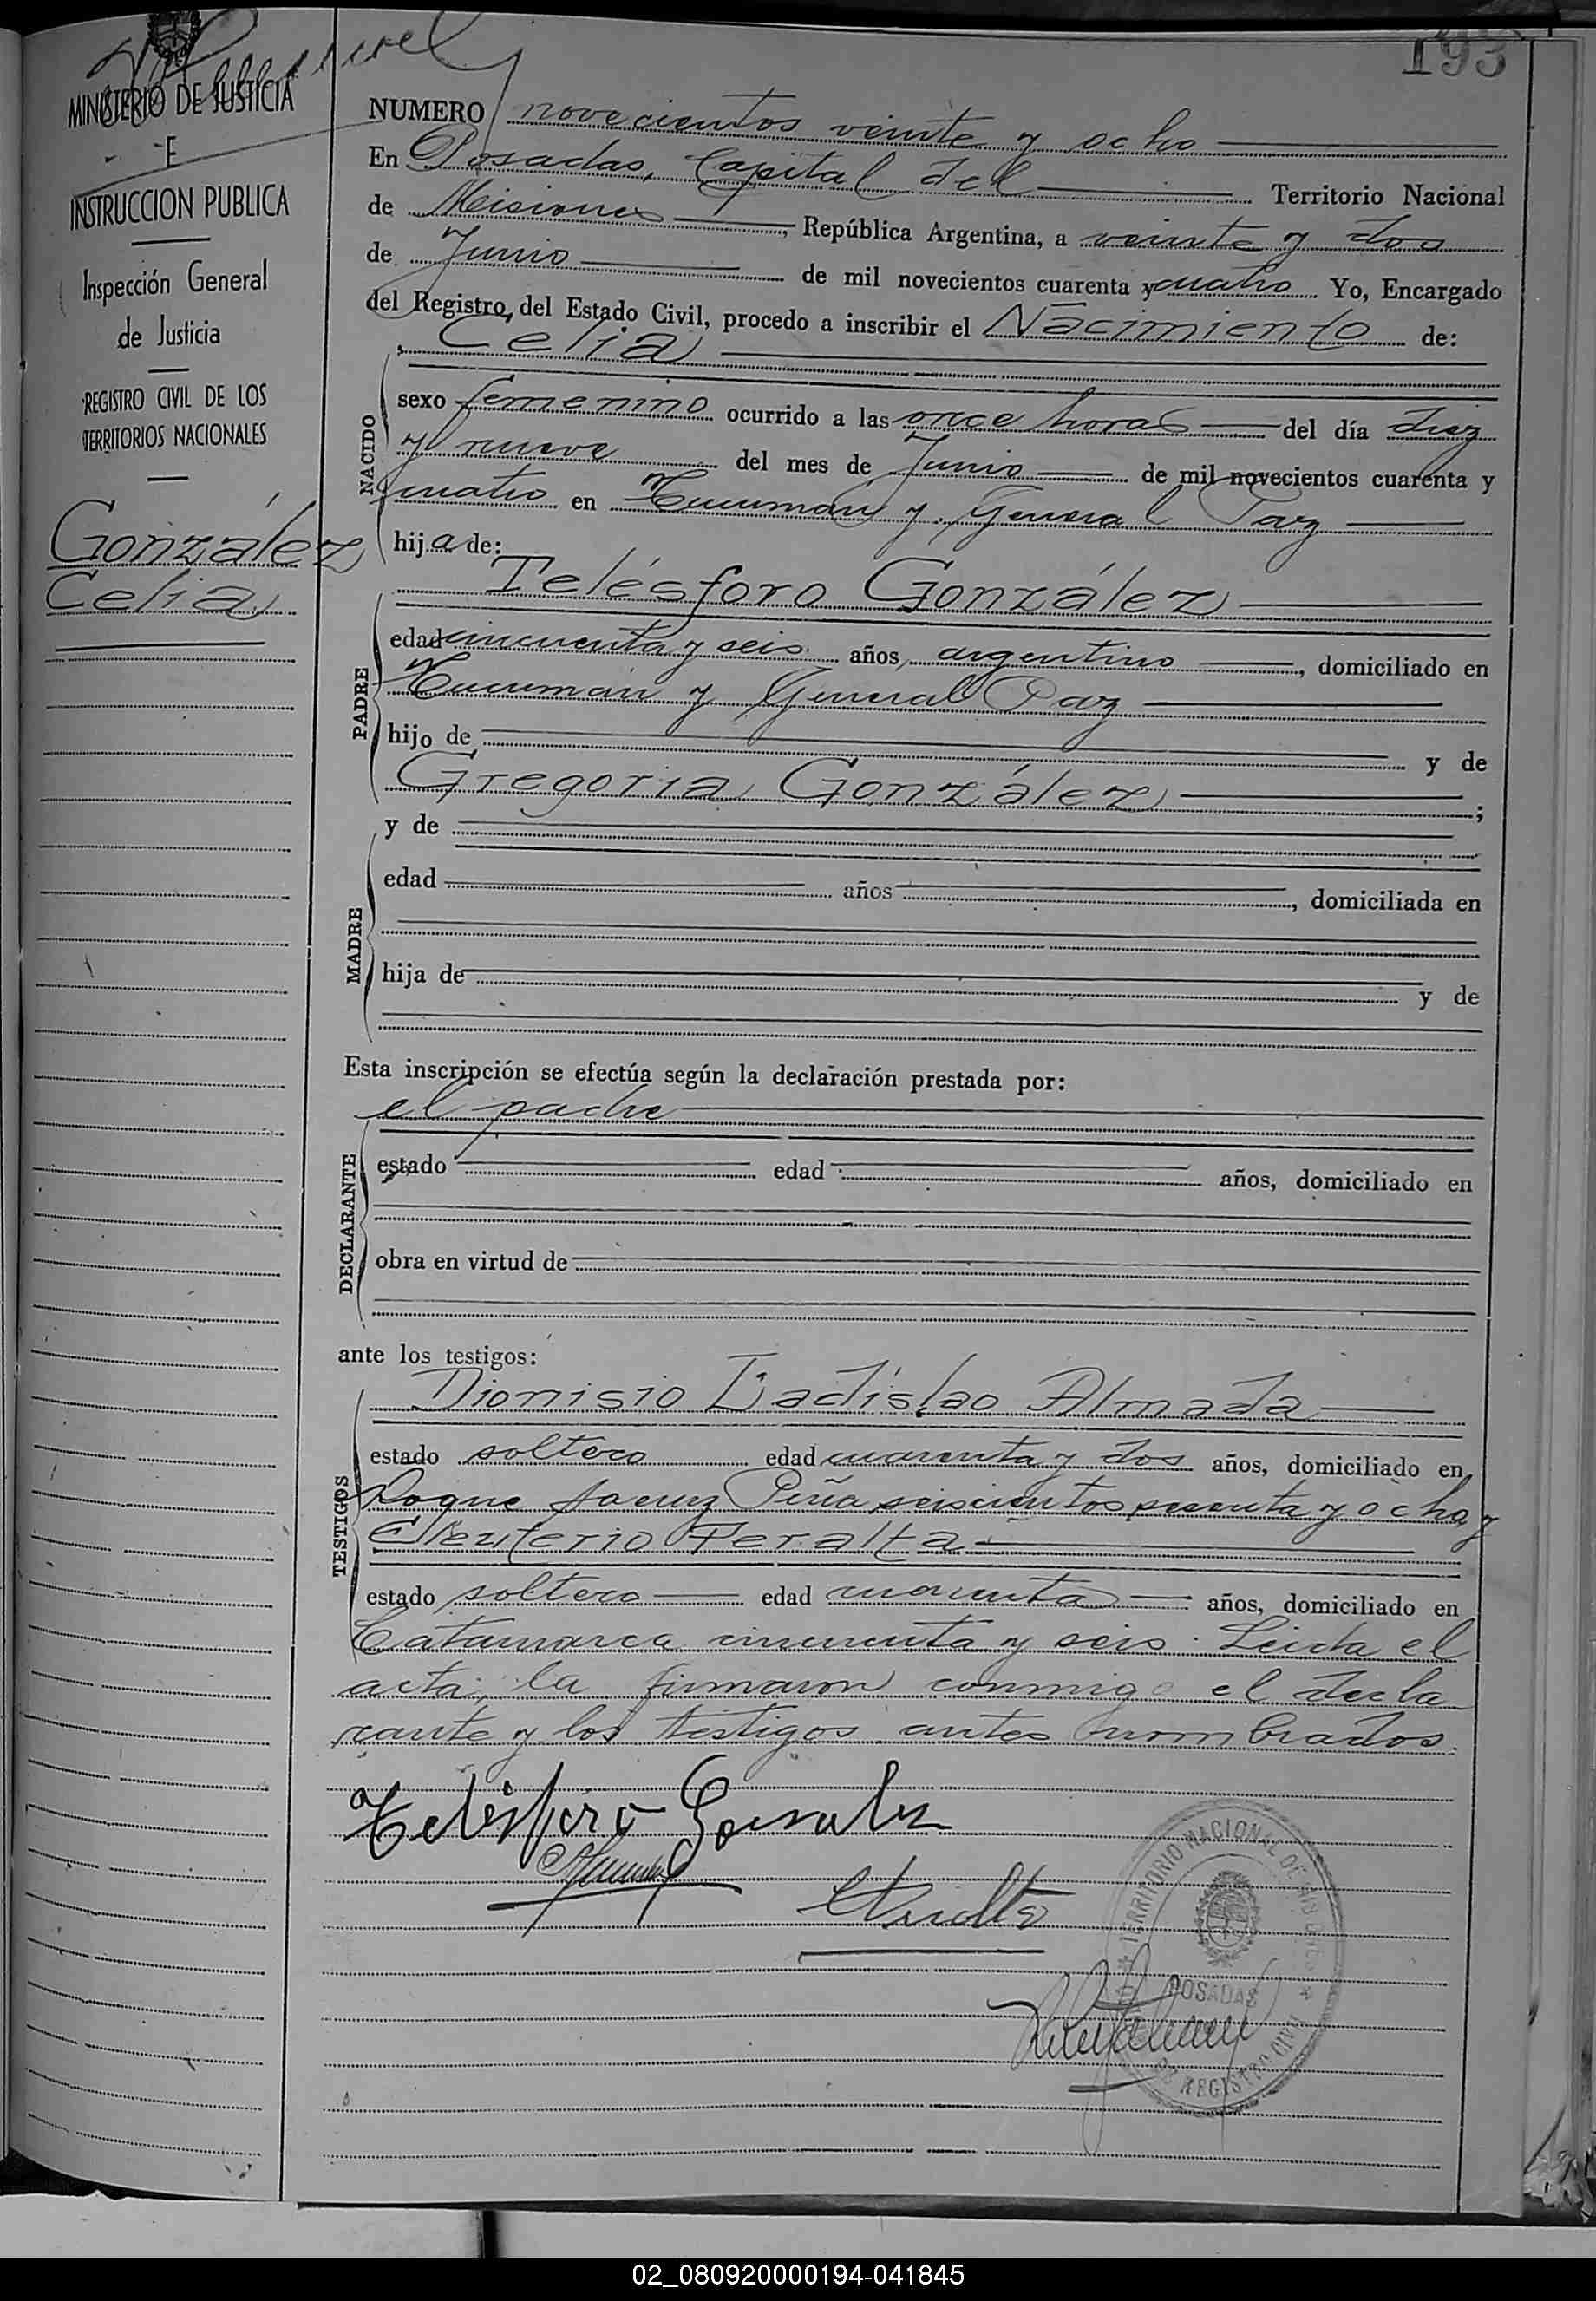 193
MINISTERIO DE JUSTICIA
E
INSTRUCCION PUBLICA
Inspección General
de Justicia
REGISTRO CIVIL DE LOS
TERRITORIOS NACIONALES
González
Celia
NUMERO novecientos veinte y ocho
En Posadas, Capital del Territorio Nacional
de Misiones, República Argentina, a veinte y dos
de Junio de mil novecientos cuarenta y cuatro Yo, Encargado
del Registro del Estado Civil, procedo a inscribir el Nacimiento de:
Celia
NACIDO
sexo femenino ocurrido a las once horas del día diez
y nueve del mes de Junio de mil novecientos cuarenta y
cuatro en Tucumán y General Paz
hija de:
Telésforo González
PADRE
edad cincuenta y seis años, argentino, domiciliado en
Tucumán y General Paz
hijo de y de
Gregoria González;
y de
MADRE
edad años, domiciliada en
hija de y de
Esta inscripción se efectúa según la declaración prestada por:
el padre
DECLARANTE
estado edad años, domiciliado en
obra en virtud de
ante los testigos:
Dionisio Ladislao Almada
TESTIGOS
estado soltero edad cuarenta y dos años, domiciliado en
Roque Saenz Peña seiscientos sesenta y ocho y
Eleuterio Peralta
estado soltero edad cuarenta años, domiciliado en
Catamarca cincuenta y seis. Leida el
acta, la firmaron conmigo el decla
rante y los testigos antes nombrados.
Telésforo Gonsales
TERRITORIO NACIONAL DE MISIONES
POSADAS
REGISTRO CIVIL
02_080920000194-041845